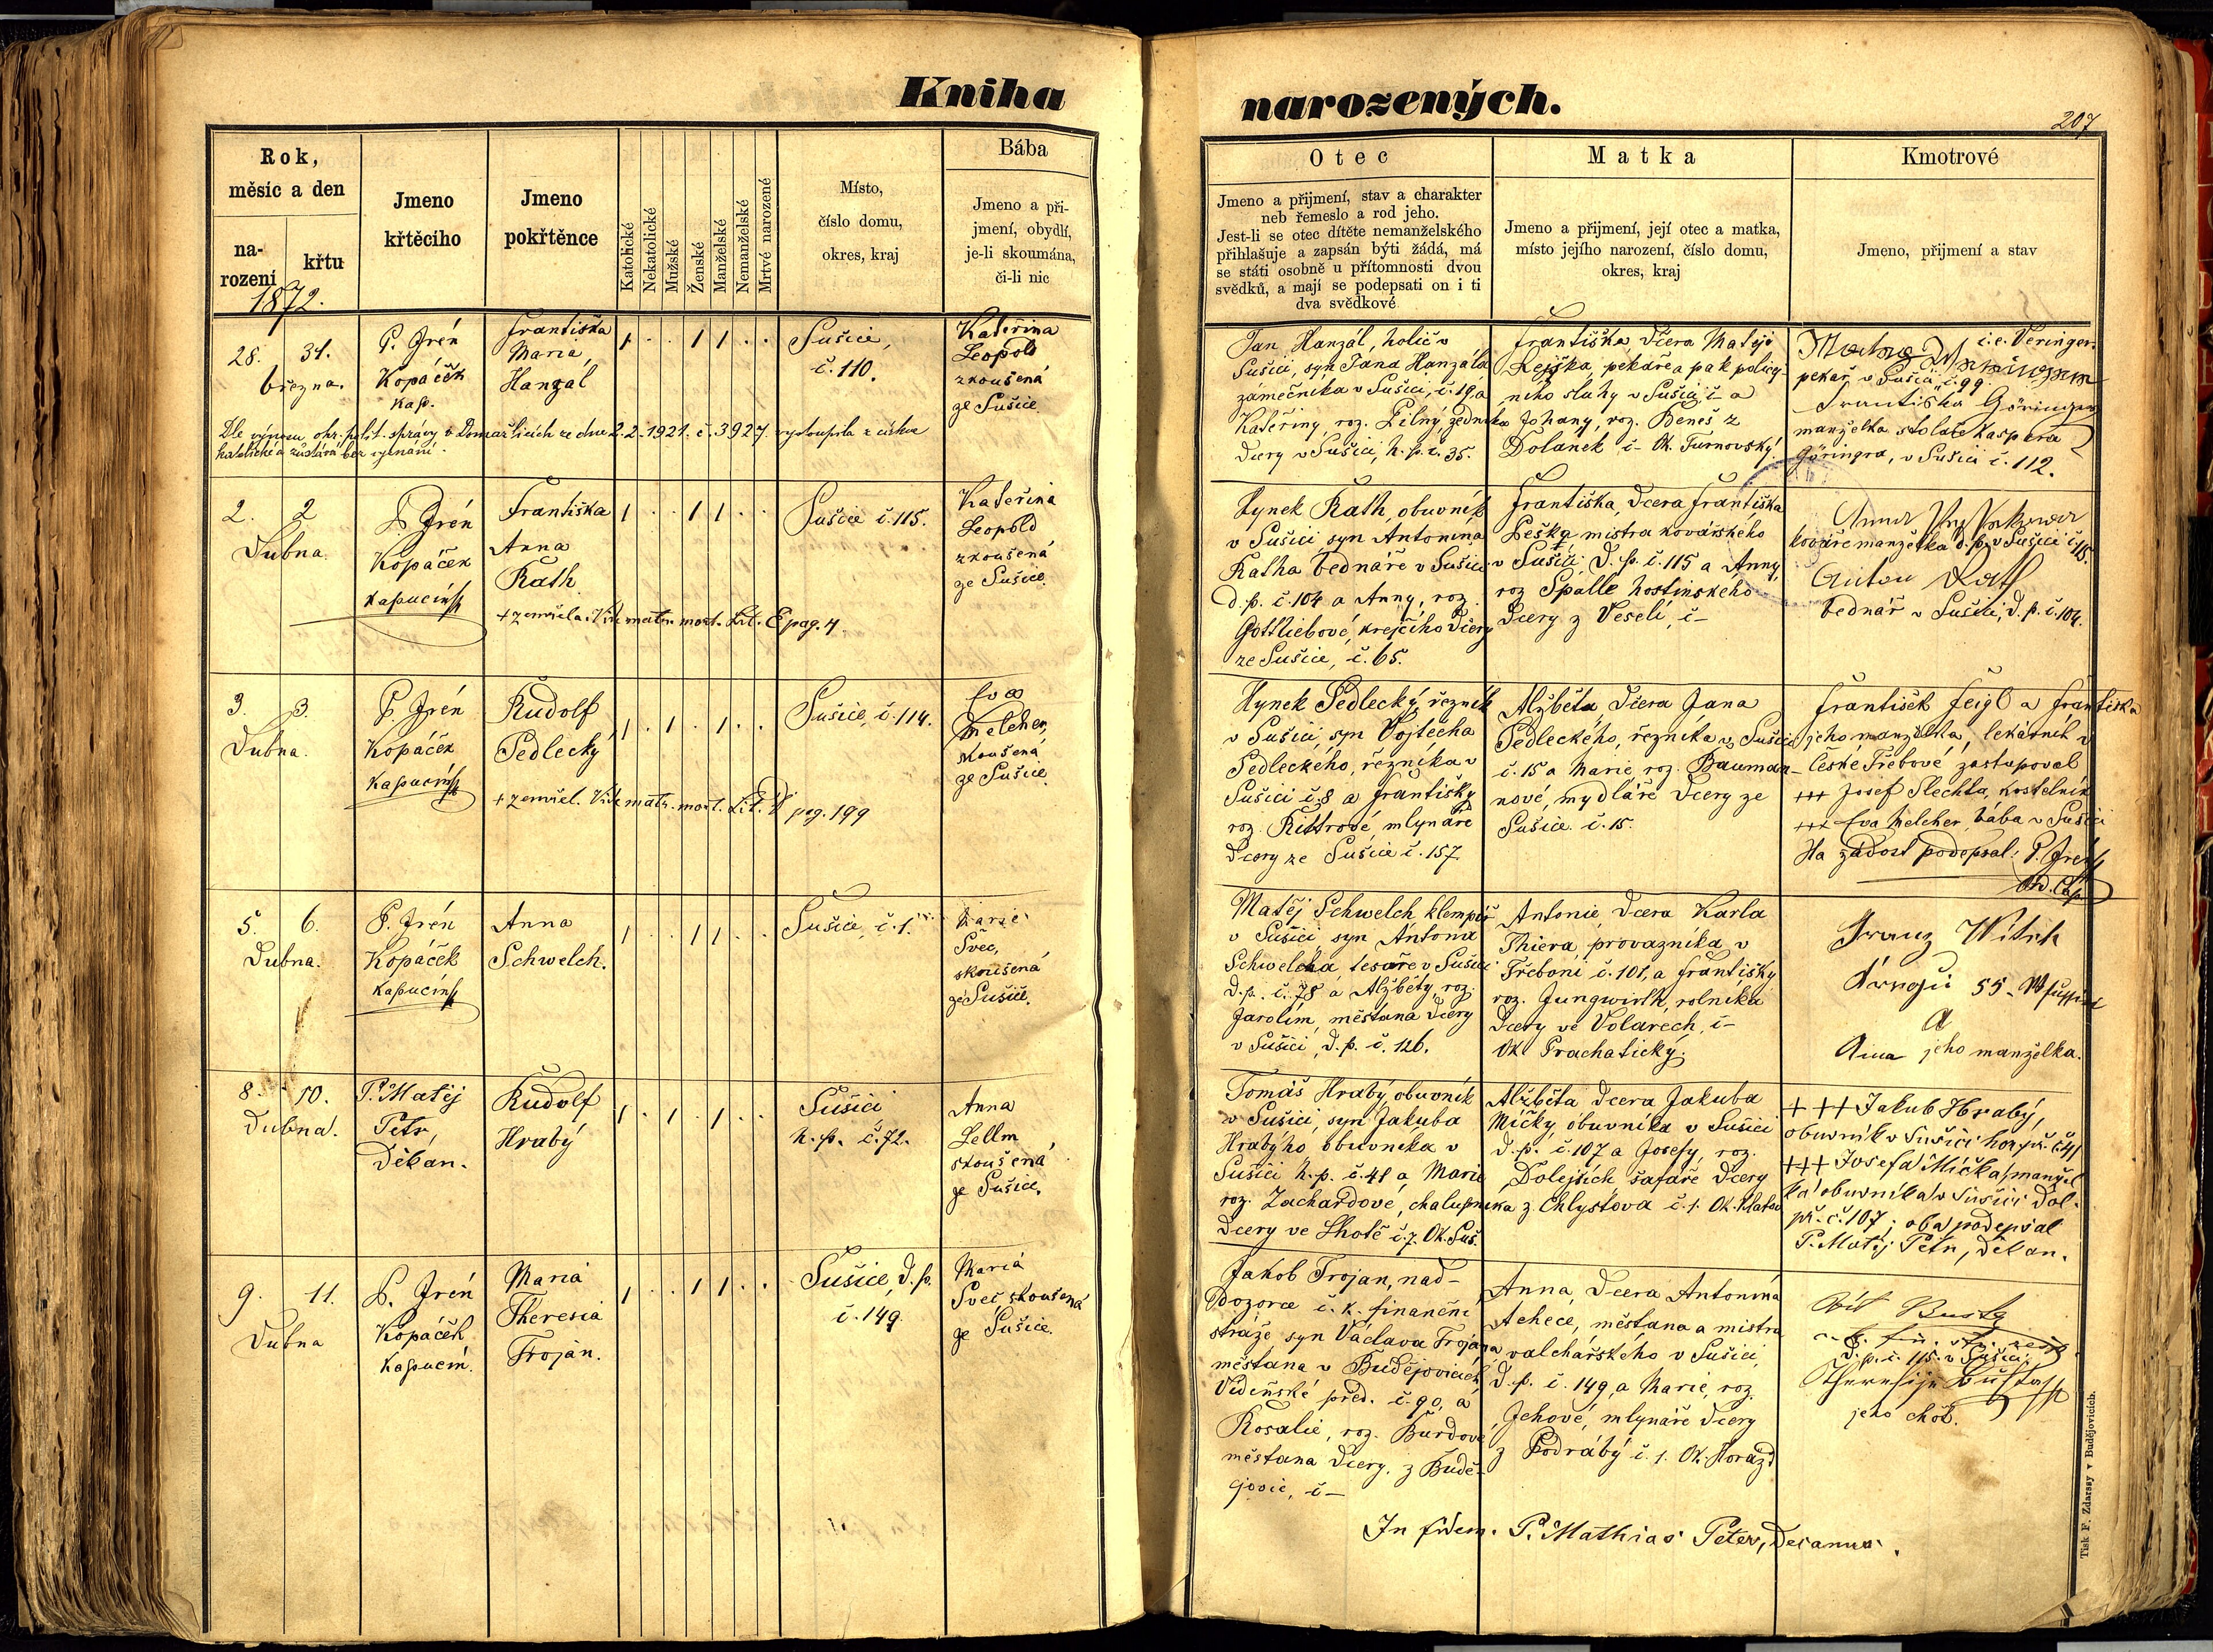 Kniha
narozených.
207
Rok,
měsíc a den
na-
rození
křtu
1872.
Jmeno
křtěcího
Jmeno
pokřtěnce
Katolické
Nekatolické
Mužské
Ženské
Manželské
Nemanželské
Mrtvé narozené
Místo,
číslo domu,
okres, kraj
Bába
Jmeno a při-
jmení, obydlí,
je-li skoumána,
či-li nic
Otec
Jmeno a přijmení, stav a charakter
neb řemeslo a rod jeho.
Jest-li se otec dítěte nemanželského
přihlašuje a zapsán býti žádá, má
se státi osobně u přítomnosti dvou
svědků, a mají se podepsati on i ti
dva svědkové
Matka
Jmeno a přijmení, její otec a matka,
místo jejího narození, číslo domu,
okres, kraj
Kmotrové
Jmeno, přijmení a stav
28. 31.
března.
P. Irén
Kopáček
kap.
Františka
Maria
Hanzal
1 . . 1 1 . .
Sušice,
č. 110.
Kateřina
Leopold
zkoušená
ze Sušice
Jan Hanzál, holič v
Sušici, syn Jana Hanzála
zámečníka v Sušici, č. 19, a
Kateřiny, roz. Pilný, zedníka
dcery v Sušici, h. p. č. 35.
Františka, dcera Matěje
Rejška, pekaře a pak policej-
ního sluhy v Sušici, č- a
Johany, roz. Beneš z
Dolanek č- Ok. Turnovský.
i.e. Veringer.
pekař v Sušici, č. 99
Františka Göringer
manželka stolaře Kaspera
Göringra, v Sušici č. 112.
Dle výnosu okr. polit. správy v Domažlicích ze dne 2.2.1921. č. 3927. vystoupila z církve
katolické a zůstává bez vyznání.
2. 2
Dubna.
P. Irén
Kopáček
kapucín
Františka
Anna
Rath
1 . . 1 1 . .
Sušice č. 115.
Kateřina
Leopold
zkoušená
ze Sušice.
+ zemřela. Vide matr. mort. Lit. E pag. 4.
Hynek Rath, obuvník
v Sušici syn Antonína
Ratha bednáře v Sušici
d. p. č. 104 a Anny, roz.
Gottliebové, krejčího dcery
ze Sušice, č. 65.
Františka, dcera Františka
Peška mistra kovářského
v Sušici, d. p. č. 115 a Anny,
roz Spálle hostinského
dcery z Veselí, č-
Anna
kováře manželka d. p. v Sušici č. 115.
Anton Rath
bednář v Sušici, d. p. č. 104.
3. 3.
Dubna.
P. Irén
Kopáček
kapucín
Rudolf
Sedlecký
1 . 1 . 1 . .
Sušice, č. 114.
Eva
Melcher,
skoušená
ze Sušice
+ zemřel. Vide matr. mort. Lit. D pag. 199
Hynek Sedlecký, řezník
v Sušici, syn Vojtěcha
Sedleckého, řezníka v
Sušici č. 8 a Františky
roz. Rittrové, mlynáře
dcery ze Sušice č. 157
Alžběta, dcera Jana
Sedleckého, řezníka v Sušici
č. 15 a Marie, roz. Bauman-
nové, mydláře dcery ze
Sušice č. 15.
František Feigl a Františka
jeho manželka, lekárník v
České Třebové zastupoval
+++ Josef Šlechta, kostelník
+++ Eva Melcher, bába v Sušici
Na žádost podepsal: P. Irén
5. 6.
Dubna.
P. Irén
Kopáček
kapucín
Anna
Schwelch.
1 . . 1 1 . .
Sušice, č. 1.
Marie
Švec,
skoušená
ze Sušice.
Matěj Schwelch klempíř
v Sušici, syn Antona
Schwelcha, tesaře v Sušici
d. p. č. 78 a Alžběty, roz.
Jarolím, měšťana dcery
v Sušici, d. p. č. 126.
Antonie, dcera Karla
Thiera, provazníka v
Třeboni č. 101, a Františky
roz. Jungwirth, rolníka
dcery ve Volarech, č-
Ok. Prachatický.
Franz Witek
a
Anna jeho manželka.
8. 10.
Dubna.
P. Matěj
Petr,
Děkan.
Rudolf
Hrabý
1 . 1 . 1 . .
Sušici
h. p. č. 72.
Anna
Lellm
skoušená
ze Sušice.
Tomáš Hrabý, obuvník
v Sušici, syn Jakuba
Hrabýho, obuvníka v
Sušici h. p. č. 41 a Marie
roz. Zachardové, chalupníka
dcery ve Lhotě č. 7. Ok. Suš.
Alžběta dcera Jakuba
Mičky, obuvníka v Sušici
d. p. č. 107 a Josefy, roz.
Dolejších, šafáře dcery
z Chlystova č. 1. Ok. Klatov
+++ Jakub Hrabý,
obuvník v Sušici hor. př. č. 41
+++ Josefa Mička, manžel-
ka obuvníka v Sušici dol.
př. č. 107; oba podepsal
P. Matěj Petr, děkan.
9. 11.
Dubna
P. Irén
Kopáček
kapucín.
Maria
Theresia
Trojan.
1 . . 1 1 . .
Sušice, d. p.
č. 149.
Maria
Švec, skoušená
ze Sušice.
Jakob Trojan, nad-
dozorce c. k. finanční
stráže syn Václava Trojana
měšťana v Budějovicích,
Vídeňské před. č. 90, a
Rosalie, roz. Burdové
měšťana dcery z Budě-
jovic, č-
Anna, dcera Antonína
Achece, měšťana a mistra
valchářského v Sušici,
d. p. č. 149, a Marie, roz.
Jchové, mlynáře dcery
z Podrábý č. 1. Ok. Horažď
d. p. č. 115. v Sušici.
jeho choť.
In fidem. P. Mathias Peter, Decanus.
Tisk F. Zdarssy v Budějovicích.